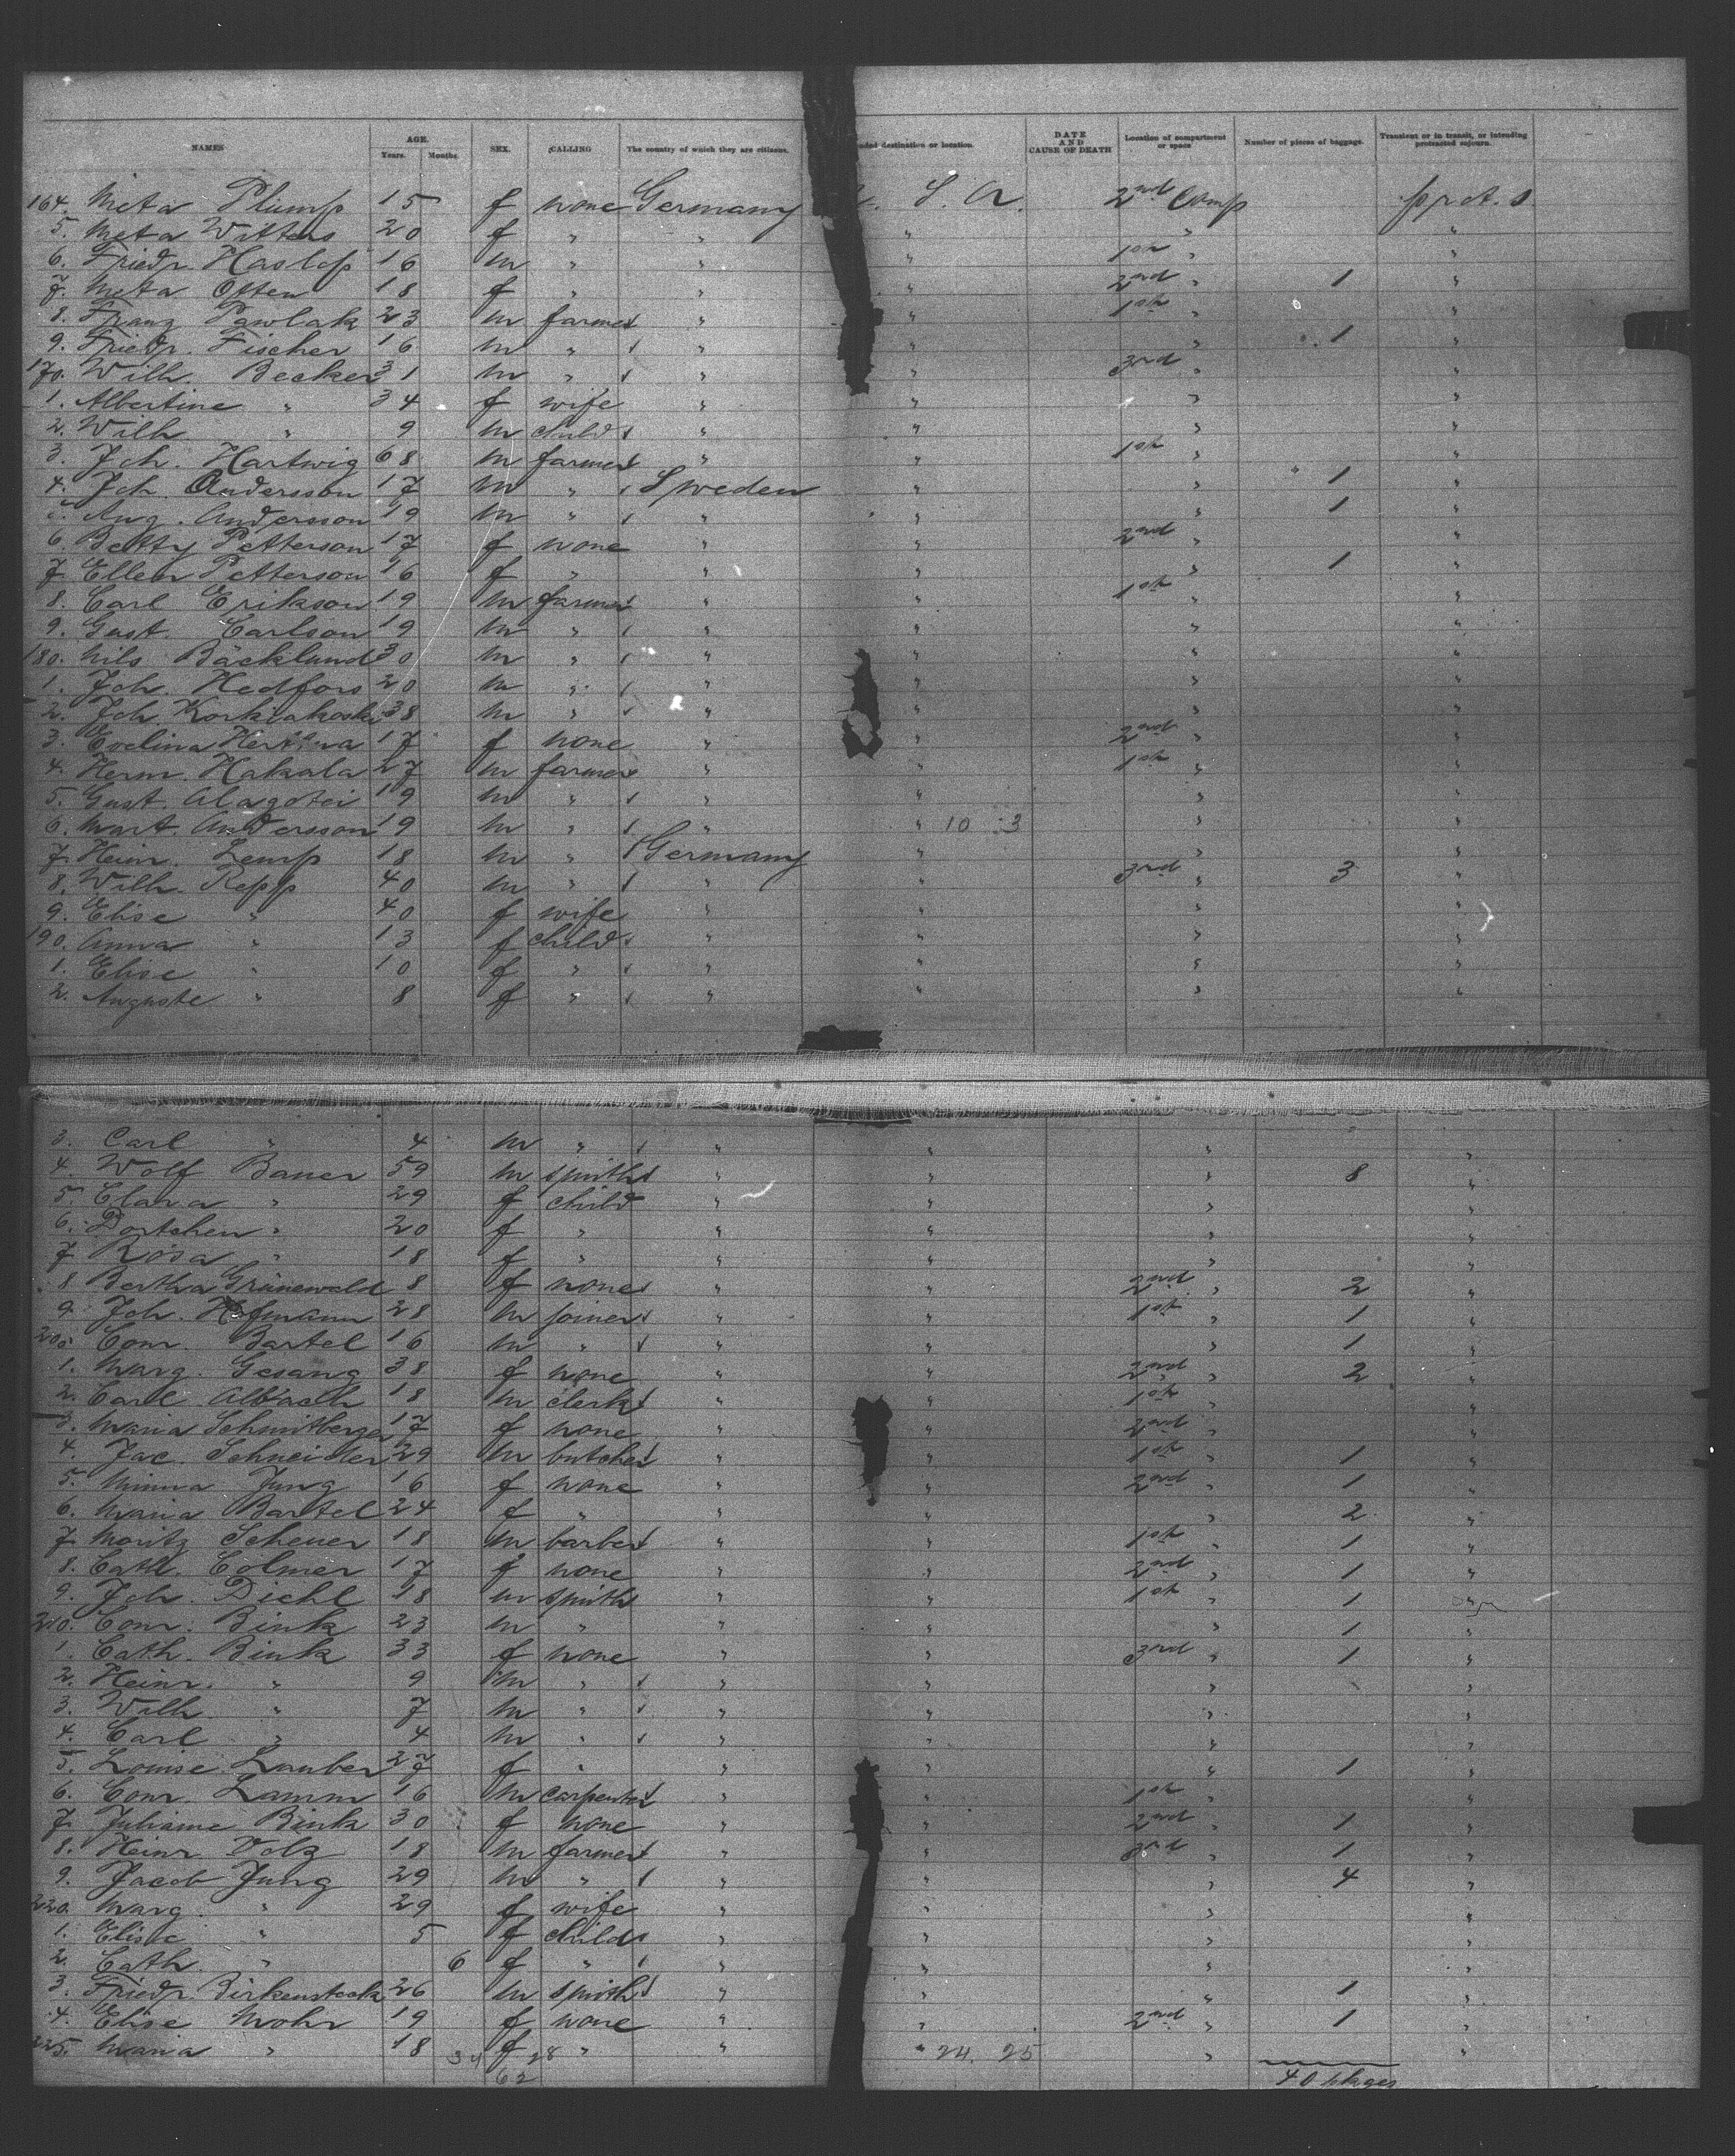 NAMES AGE. Years. Months. SEX. CALLING The country of which they are citizens. nded destination or location. DATE AND CAUSE OF DEATH Location of compartment or space Number of pieces of baggage. Transient or in transit, or intending protracted sojourn.
164. Meta Plump 15 f none Germany S. A. 2nd Comp prct. s
5. Meta Witters 20 f " " " " "
6. Friedr. Haslop 16 m " " " 1st " "
7. Meta Otten 18 f " " " 2nd " 1 "
8. Franz Pawlak 23 m farmer " " 1st " "
9. Friedr. Fischer 16 m " " " " 1 "
170. Wilh. Becker 31 m " " " 3rd " "
1. Albertine " 34 f wife " " " "
2. Wilh. " 9 m child " " " "
3. Joh. Hartwig 68 m farmer " " 1st " "
4. Joh. Andersson 17 m " Sweden " " 1 "
5. Aug. Andersson 19 m " " " " 1 "
6. Betty Petterson 17 f none " " 2nd " "
7. Ellen Petterson 16 f " " " " 1 "
8. Carl Erikson 19 m farmer " " 1st " "
9. Gust. Carlson 19 m " " " " "
180. Nils Bäcklund 30 m " " " " "
1. Joh. Hedfors 20 m " " " " "
2. Joh. Korkiakoski 38 m " " " " "
3. Evelina 17 f none " " 2nd " "
4. Herm. Hakala 27 m farmer " " 1st " "
5. Gust. 19 m " " " " "
6. Mart. Andersson 19 m " " " 10 3 " "
7. Heinr. Lemp 18 m " Germany " " "
8. Wilh. Repp 40 m " " " 3rd " 3 "
9. Elise " 40 f wife " " " "
190. Anna " 13 f child " " " "
1. Elise " 10 f " " " " "
2. Auguste " 8 f " " " " "
3. Carl " 4 m " " " " "
4. Wolf Bauer 59 m smith " " " 8 "
5. Clara " 29 f child " " " "
6. Dortchen " 20 f " " " " "
7. Rosa " 18 f " " " " "
8. Bertha Grünewald 8 f none " " 2nd " 2 "
9. Joh. Hofmann 28 m joiner " " 1st " 1 "
200. Conr. Bartel 16 m " " " " 1 "
1. Marg. Gesang 38 f none " " 2nd " 2 "
2. Carl Albach 18 m clerk " " 1st " "
3. Maria Schmitberger 17 f none " " 2nd " "
4. Jac. Schneider 29 m butcher " " 1st " 1 "
5. Minna Jung 16 f none " " 2nd " 1 "
6. Maria Bartel 24 f " " " " 2 "
7. Moritz Scheuer 18 m barber " " 1st " 1 "
8. Cath. Colmer 17 f none " " 2nd " 1 "
9. Joh. Diehl 18 m smith " " 1st " 1 "
210. Conr. Bink 23 m " " " " 1 "
1. Cath. Bink 33 f none " " 3rd " 1 "
2. Heinr. " 9 m " " " " "
3. Wilh. " 7 m " " " " "
4. Carl " 4 m " " " " "
5. Louise Lauber 27 f " " " " 1 "
6. Conr. Lamm 16 m carpenter " " 1st " "
7. Juliane Bink 30 f none " " 2nd " 1 "
8. Heinr. Volz 18 m farmer " " 3rd " 1 "
9. Jacob Jung 29 m " " " " 4 "
220. Marg. " 29 f wife " " " "
1. Elise " 5 f child " " " "
2. Cath. " 6 f " " " " "
3. Friedr. Birkenstock 26 m smith " " " 1 "
4. Elise Mohr 19 f none " " 2nd " 1 "
225. Maria " 18 f " " " 24. 25 " "
34 28
62 40 pkges